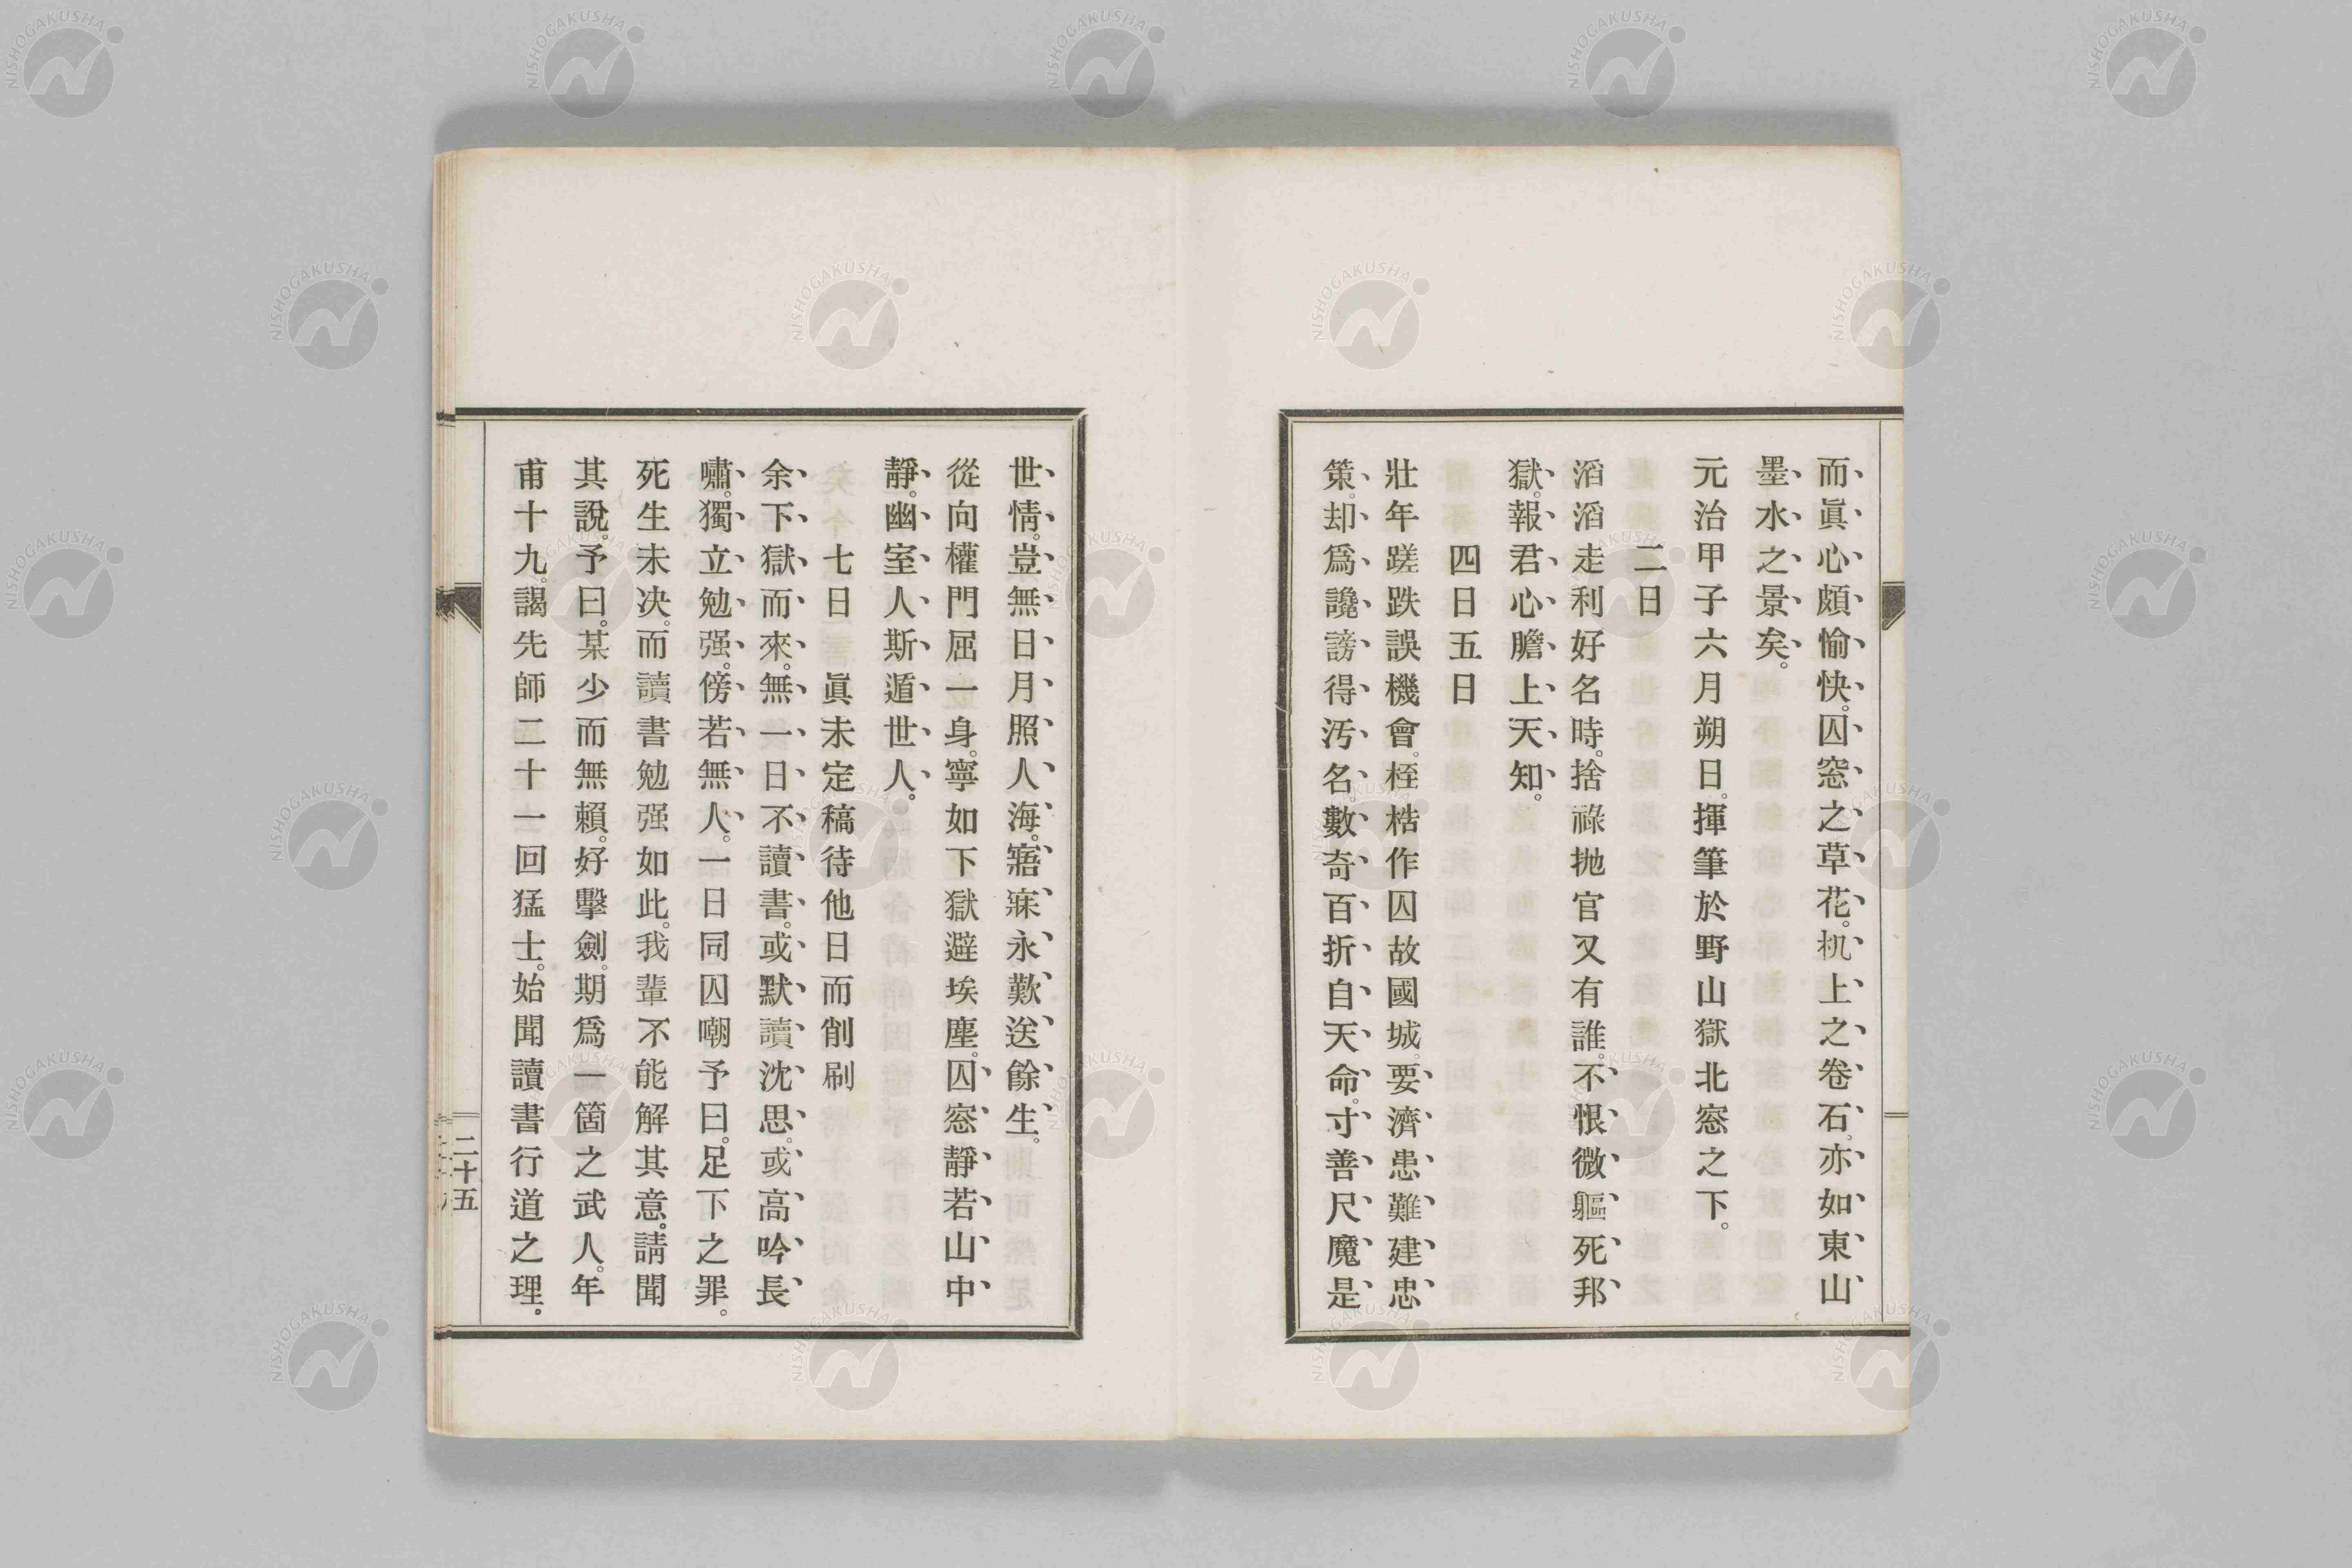 而眞心頗愉快。囚窓之草花。机上之卷石。亦如東山
墨水之景矣。
元治甲子六月朔日。揮筆於野山獄北窓之下。
二日
滔滔走利好名時。捨祿抛官又有誰。不恨微軀死邦
獄。報君心膽上天知。
四日五日
壯年蹉跌誤機會。桎梏作囚故國城。要濟患難建忠
策。却爲讒謗得汚名。數奇百折自天命。寸善尺魔是
世情。豈無日月照人海。寤寐永歎送餘生。
從向權門屈一身。寧如下獄避埃塵。囚窓靜若山中
靜。幽室人斯遁世人。
七日 眞未定稿待他日而削刷
余下獄而來。無一日不讀書。或默讀沈思。或高吟長
嘯。獨立勉强。傍若無人。一日同囚嘲予曰。足下之罪。
死生未决。而讀書勉强如此。我輩不能解其意。請聞
其說。予曰。某少而無賴。好擊劍。期爲一箇之武人。年
甫十九。謁先師二十一回猛士。始聞讀書行道之理。
二十五
NISHOGAKUSHA